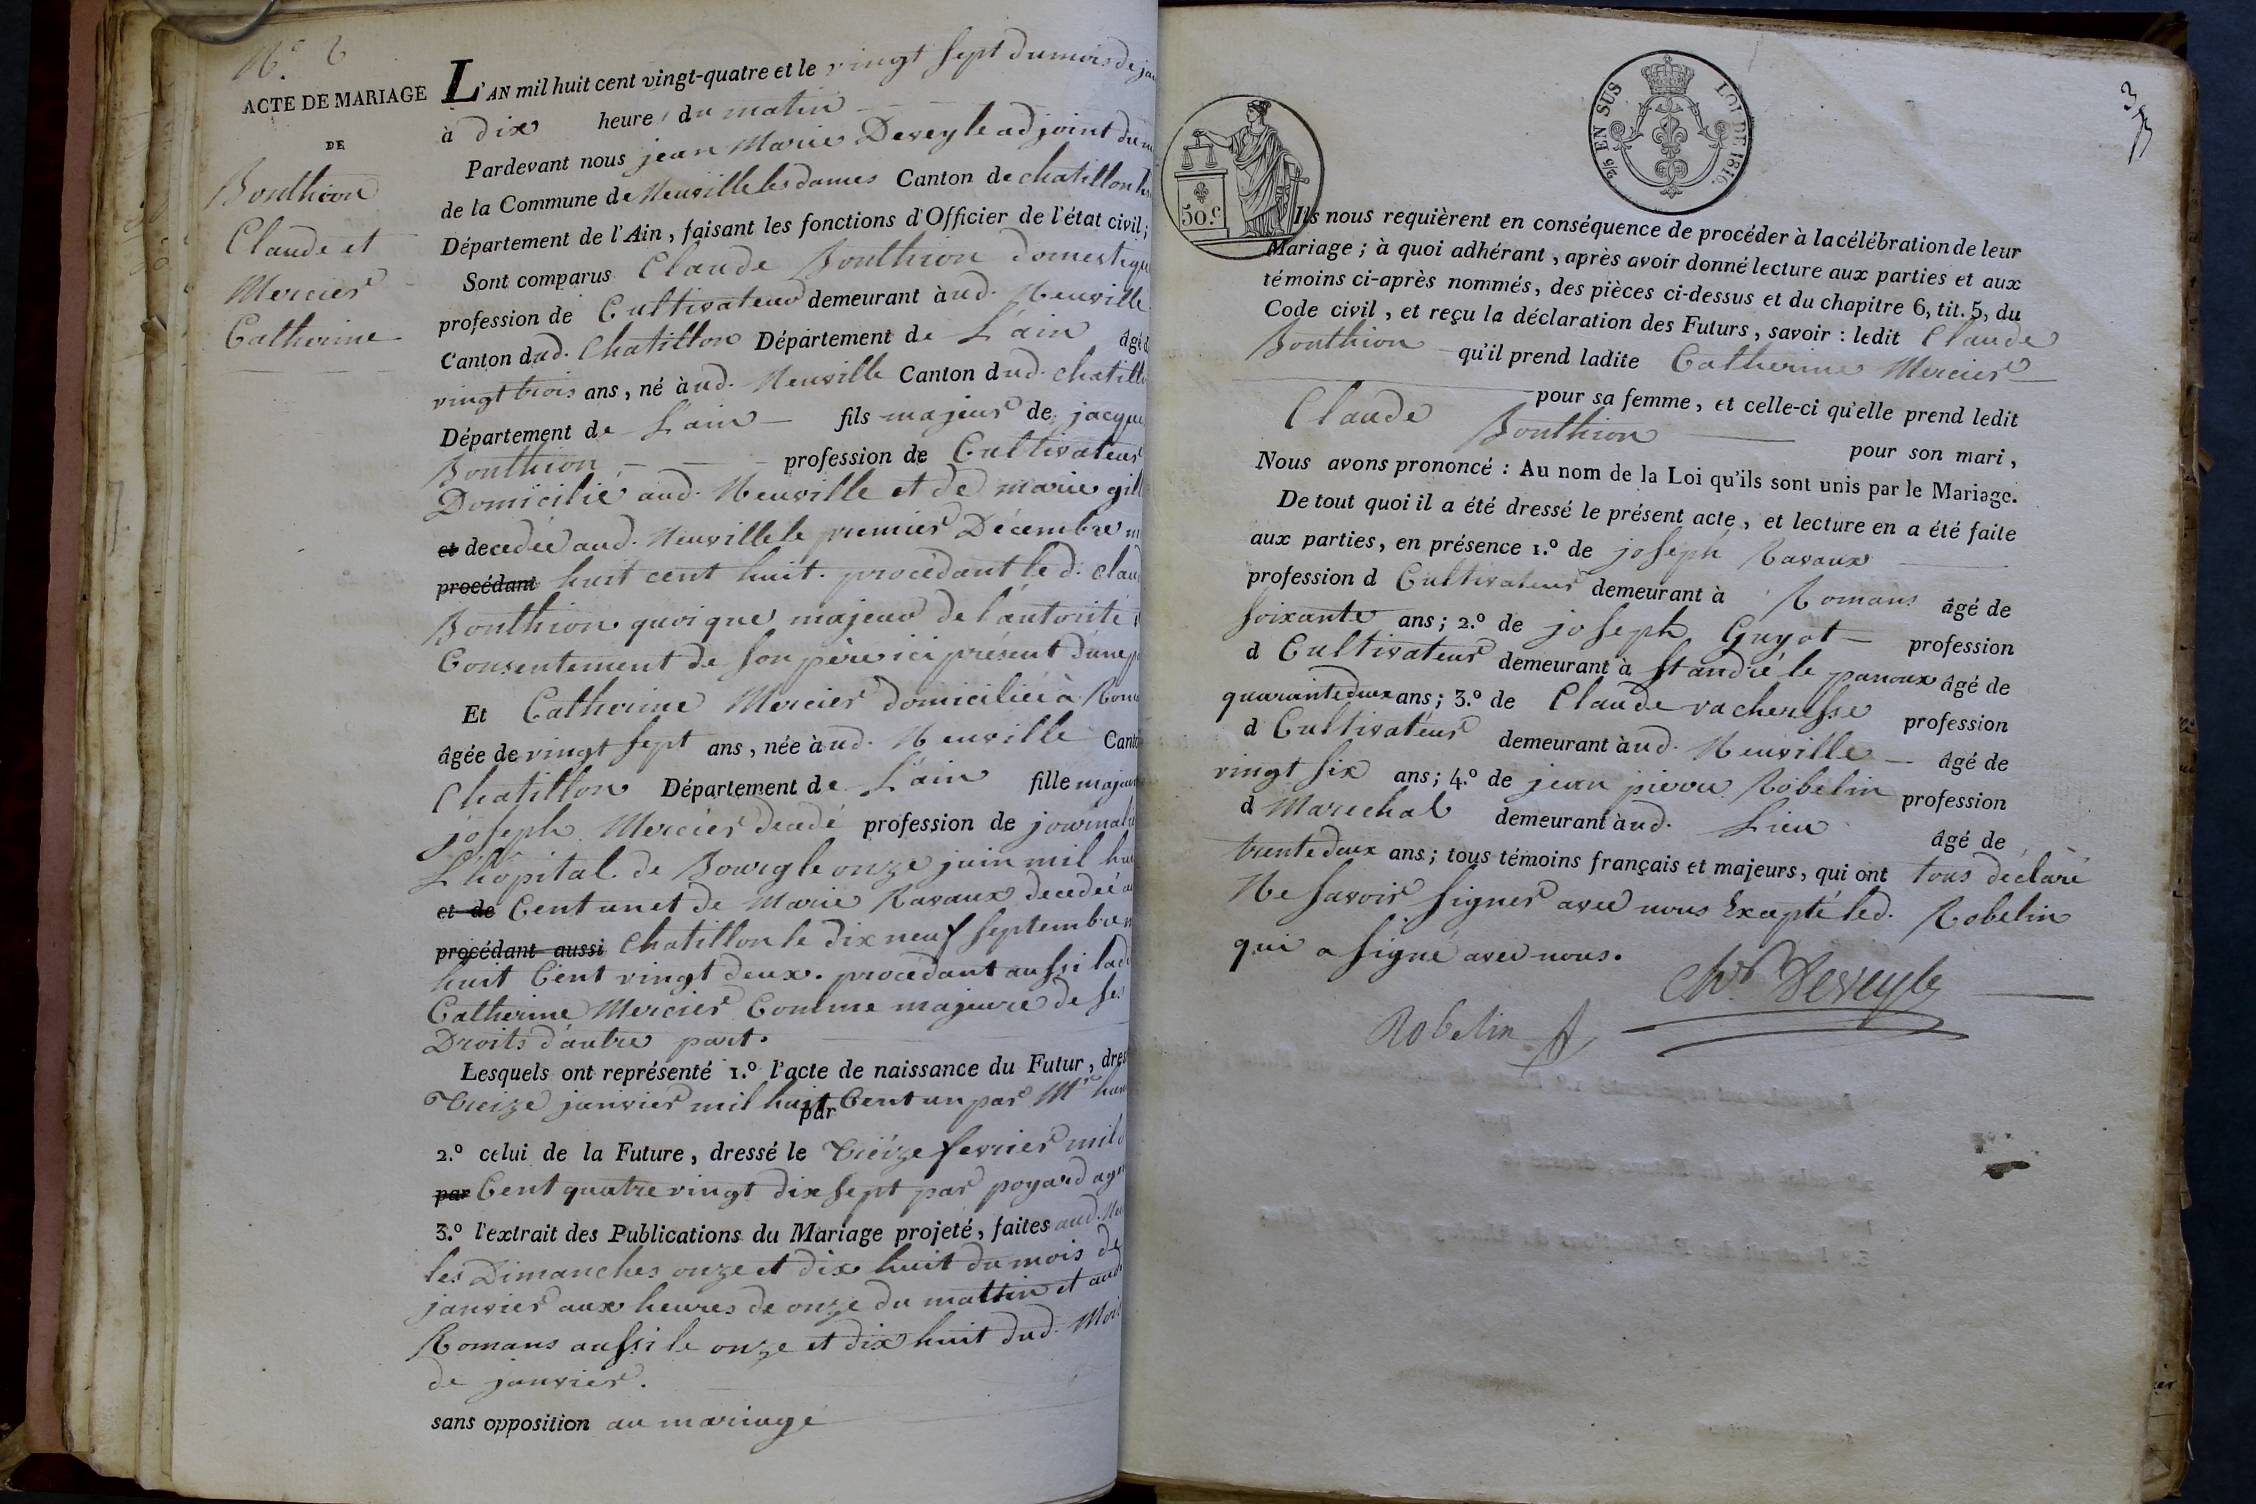 N.o 6
ACTE DE MARIAGE
DE
Bouthion
Claude et
Mercier
Catherine
L'AN mil huit cent vingt-quatre et le vingt sept du mois de jan
à dix heures du matin
Pardevant nous jean Marie Deveyle adjoint du m
de la Commune de Neuville les dames Canton de chatillon les
Département de l'Ain, faisant les fonctions d'Officier de l'état civil;
Sont comparus Claude Bouthion domestique
profession de Cultivateur demeurant à ud. Neuville
Canton dud. Chatillon Département de L'ain âgé d
vingt trois ans, né à ud. Neuville Canton dud. chatillo
Département de L'ain fils majeur de jacque
Bouthion profession de Cultivateur
Domicilié aud. Neuville et de marie gill
et decedée aud. Neuville le premier Décembre m
procédant huit cent huit. procédant led. Claud
Bouthion quoique majeur de l'autorité
Consentement de son père ici présent d'une p
Et Catherine Mercier domiciliée à Rom
âgée de vingt sept ans, née à ud. Neuville Canto
Chatillon Département de L'ain fille majeure
joseph Mercier decedé profession de journali
L'hôpital de Bourg le onze juin mil hui
et de Cent un et de Marie Ravaux decedée a
procédant aussi Chatillon le dix neuf septembre m
huit Cent vingt deux. procedant aussi lad
Catherine Mercier Comme majeure de ses
Droits d'autre part.
Lesquels ont représenté 1.o l'acte de naissance du Futur, dres
Treize janvier mil huit Cent un par Mr
par
2.o celui de la Future, dressé le treize fevrier mil
par Cent quatre vingt dix sept par poyard agen
3.o l'extrait des Publications du Mariage projeté, faites aud. Neu
les Dimanches onze et dix huit du mois de
janvier aux heures de onze du mattin et aud
Romans aussi le onze et dix huit dud. Mois
de janvier.
sans opposition au mariage
2/5 EN SUS
LOI DE 1816.
50.c
Ils nous requièrent en conséquence de procéder à la célébration de leur
Mariage; à quoi adhérant, après avoir donné lecture aux parties et aux
témoins ci-après nommés, des pièces ci-dessus et du chapitre 6, tit. 5, du
Code civil, et reçu la déclaration des Futurs, savoir: ledit Claude
Bouthion qu'il prend ladite Catherine Mercier
pour sa femme, et celle-ci qu'elle prend ledit
Claude Bouthion pour son mari,
Nous avons prononcé: Au nom de la Loi qu'ils sont unis par le Mariage.
De tout quoi il a été dressé le présent acte, et lecture en a été faite
aux parties, en présence 1.o de joseph Ravaux
profession d Cultivateur demeurant à Romans âgé de
soixante ans; 2.o de joseph Guyot profession
d Cultivateur demeurant à St andré le panoux âgé de
quarante deux ans; 3.o de Claude vacheresse profession
d Cultivateur demeurant à ud. Neuville âgé de
vingt six ans; 4.o de jean pierre Robelin profession
d Marechal demeurant à ud. Lieu âgé de
trente deux ans; tous témoins français et majeurs, qui ont tous déclaré
Ne savoir signer avec nous Excepté led. Robelin
qui a signé avec nous.
Chr Deveyle
Robelin